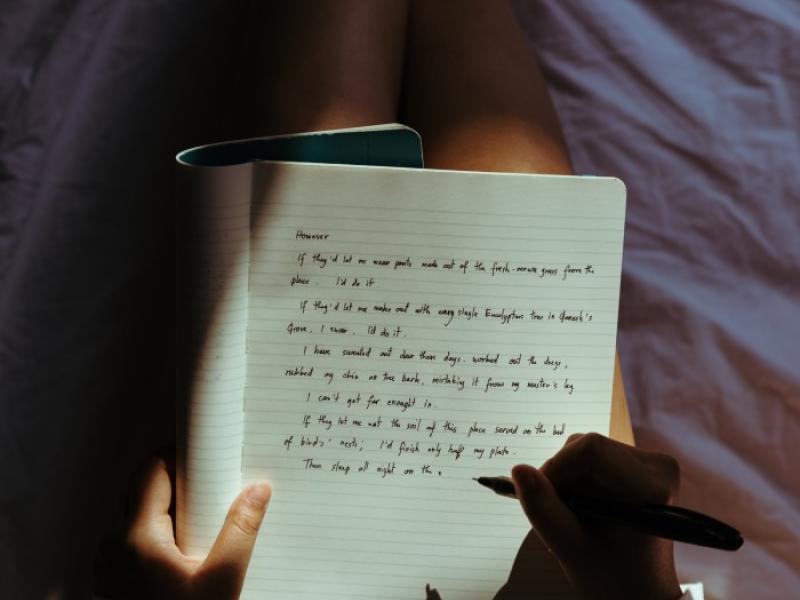 However
If they'd let me wear pants made out of the fresh-mown grass from the
place. I'd do it.
If they'd let me make out with every single Eucalyptus tree in Ganesh's
Grove. I swear. I'd do it.
I have sweated out dew these days. worked out the dregs,
rubbed my chin on tree bark, mistaking it from my master's leg
I can't get far enought in.
If they let me eat the soil of this place served on the bed
of birds' nests; I'd finish only half my plate.
Then sleep all night on the